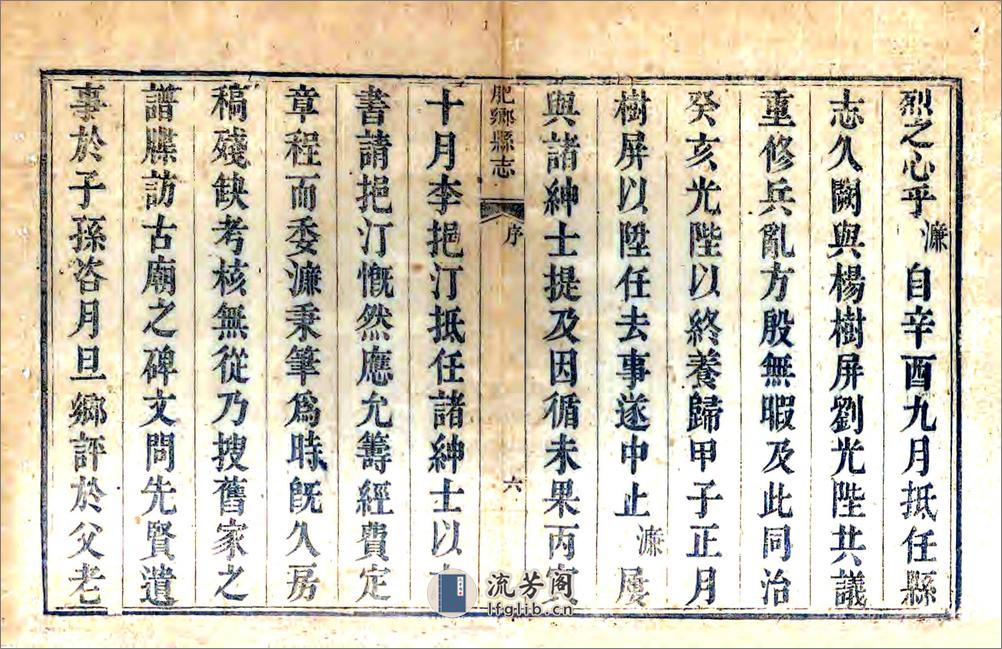 烈之心乎濂自辛酉九月抵任縣
志久闕與楊樹屏劉光陛共議
重修兵亂方殷無暇及此同治
癸亥光陛以終養歸甲子正月
樹屏以陞任去事遂中止濂屢
與諸紳士提及因循未果丙
肥鄉縣志
序
六
十月李挹汀抵任諸紳士以
書請挹汀慨然應允籌經費定
章程而委濂秉筆爲時旣久房
稿殘缺考核無從乃搜舊家之
譜牒訪古廟之碑文問先賢遺
事於子孫咨月旦鄉評於父老
流芳阁
lfglib.cn